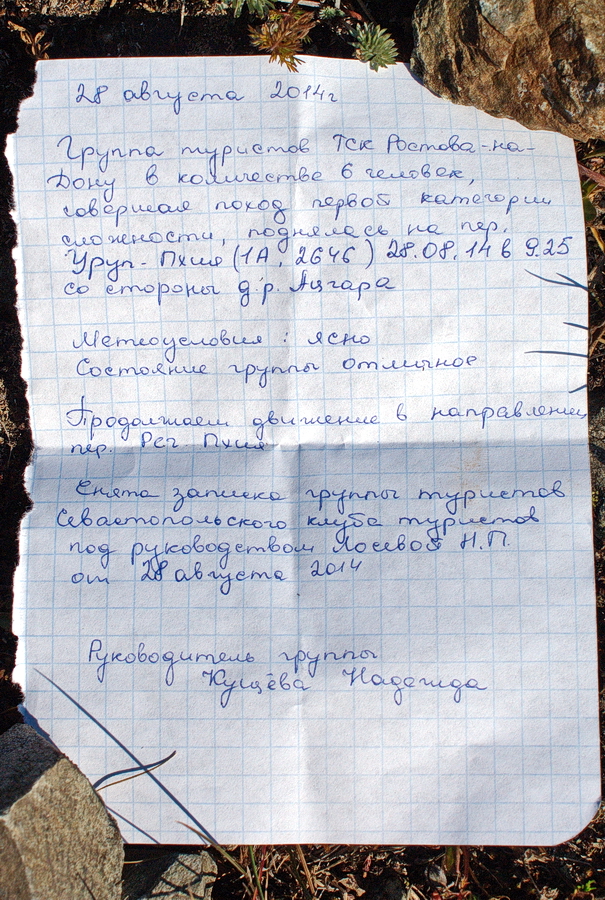 28 августа 2014г
Группа туристов ТСК Ростова-на-
Дону в количестве 6 человек,
совершая поход первой категории
сложности, поднялась на пер.
Уруп-Пхия (1А, 2646) 28.08.14 в 9.25
со стороны д.р. Ацгара
Метеоусловия: ясно
Состояние группы отличное
Продолжаем движение в направлении
пер. Реч. Пхия
Снята записка группы туристов
Севастопольского клуба туристов
под руководством Лосевой Н.П.
от 28 августа 2014
Руководитель группы
Кущёва Надежда